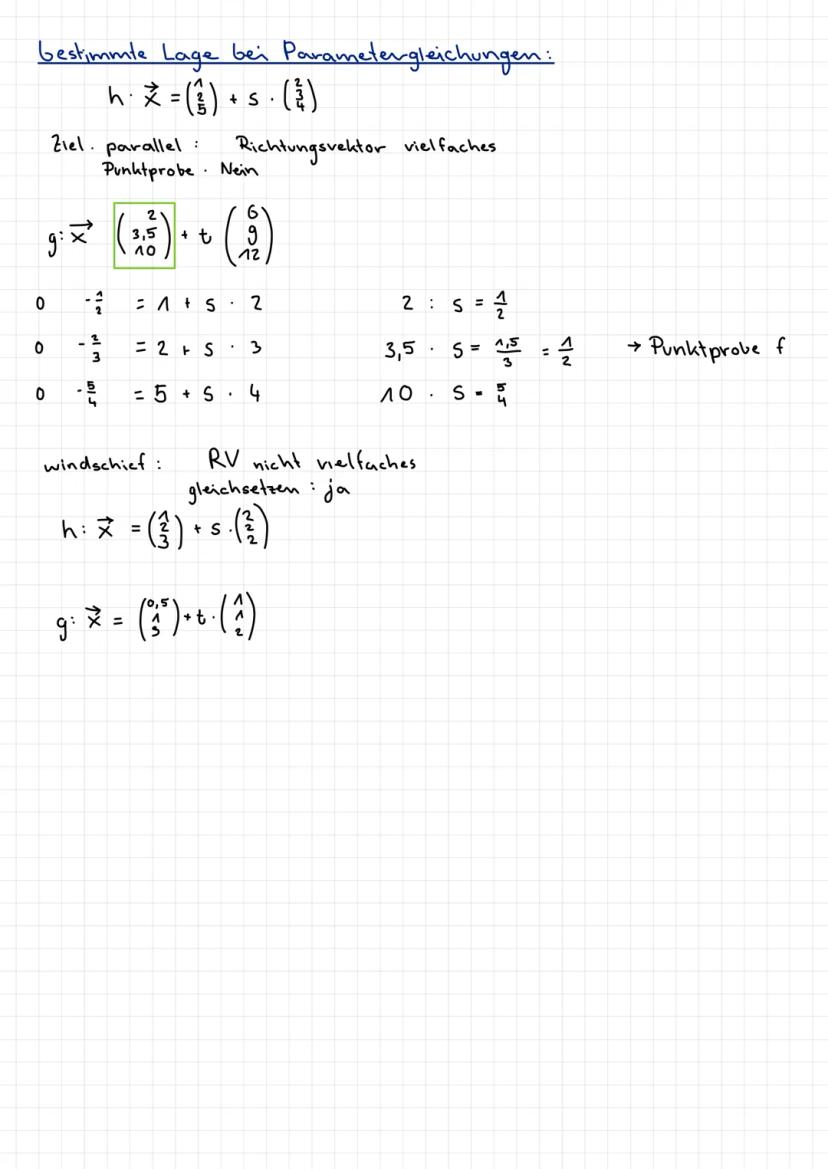 bestimmte Lage bei Parametergleichungen:
h: x⃗ = (1 2 5) + s · (2 3 4)
Ziel. parallel : Richtungsvektor vielfaches
Punktprobe. Nein
g: x⃗ (2 3,5 10) + t (6 9 12)
0 -1/2 = 1 + s · 2 2 : s = 1/2
0 -2/3 = 2 + s · 3 3,5 · s = 1,5/3 = 1/2 → Punktprobe f
0 -5/4 = 5 + s · 4 10 · s = 5/4
windschief : RV nicht vielfaches
gleichsetzen : ja
h: x⃗ = (1 2 3) + s · (2 2 2)
g: x⃗ = (0,5 1 3) + t · (1 1 2)